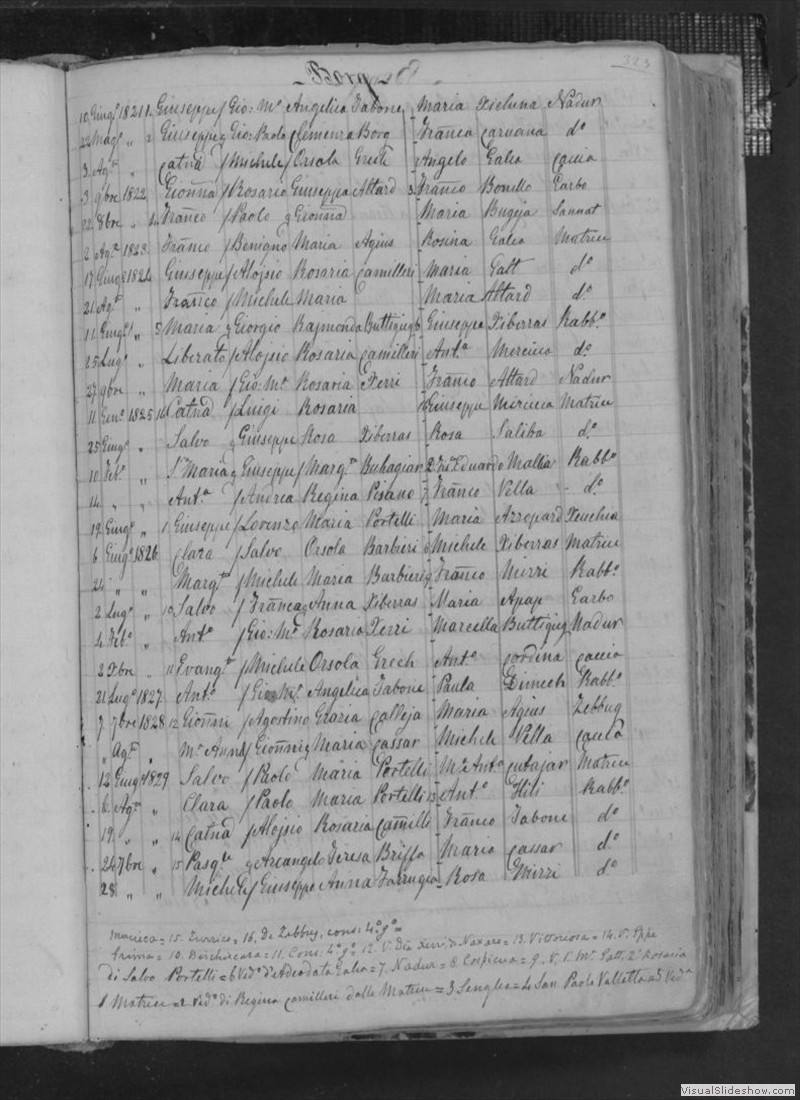 Borg
323
10 Giugº 1821 1. Giuseppe / Gio: Mª Angelica Tabone Maria Xicluna Nadur
22 Magº „ 2 Giuseppe g Gio: Paolo Clemenza Borg Franca Caruana dº
3 Agº „ Catnã / Michele / Orsola Grech Angelo Galea Caccia
3 9bre 1822 Gionna / Rosario Giuseppa Attard 3 Franco Bonello Garbo
22 8bre „ 4 Franco / Paolo g Gionna Maria Bugeja Sannat
2 Agº 1823 Franco / Benigno Maria Agius Rosina Galea Matrice
17 Giugº 1824 Giuseppe / Alojsio Rosaria Camilleri Maria Gatt dº
21 Agº „ Franco / Michele Maria Maria Attard dº
11 Giugº „ 5 Maria g Giorgio Rajmonda Buttigieg 6 Giuseppe Xiberras Rabbº
25 Lugº „ Liberato / Alojsio Rosaria Camilleri Antª Mercieca dº
27 9bre „ Maria / Gio: Mª Rosaria Xerri Franco Attard Nadur
11 Genº 1825 Catnã / Luigi Rosaria Giuseppe Mercieca Matrice
25 Giugº „ Salvo g Giuseppe Rosa Xiberras Rosa Saliba dº
10 Febº „ Mariã g Giuseppe / Margª Buhagiar Eduardo Mallia Rabbº
14 „ „ Antª / Andrea Regina Pisano 7 Franco Vella - dº
19 Giugº „ Giuseppe / Lorenzo Maria Portelli Maria Azzopard Xeuchia
6 Giugº 1826 Clara / Salvo Orsola Barbieri Michele Xiberras Matrice
24 „ „ Margª / Michele Maria Barbieri 9 Franco Mizzi Rabbº
2 Lugº „ 10 Salvo / Franca g Anna Xiberras Maria Apap Garbo
4 Febº „ Antº / Gio: Mª Rosario Xerri Marcella Buttigieg Nadur
2 Xbre „ 11 Evangª / Michele Orsola Grech Antº Cordina Caccia
21 Lugº 1827 Antº / Gio Mª Angelica Tabone Paula Dimech Rabbº
7 7bre 1828 12 Gionni / Agostino Grazia Calleja Maria Agius Zebbug
„ Agº „ Mª Anna / Gionni g Maria Cassar Michele Vella Caccia
12 Giugº 1829 Salvo / Paolo Maria Portelli Mª Antª Cutajar Matrice
6 Agº „ Clara / Paolo Maria Portelli 13 Antº Hili Rabbº
19 „ „ 14 Catnã / Alojsio Rosaria Camilli Franco Tabone dº
24 7bre „ 15 Pasqle g Arcangelo Teresa Briffa Maria Cassar dº
28 „ „ Michele / Giuseppe Anna Farrugia Rosa Mizzi dº
= 15. = 16. Di Zebbug, cons: 4º gº =
= 10. Birchircara = 11. Cons: 4º gº = 12. Vª Xerri di Naxaro = 13. Vittoriosa = 14. Vº
di Salvo Portelli = 6 Vedª di Adeodata Galea = 7. Nadur = 8. Cospicua = 9. Rosaria
1 Matrice = 2 Vedº di Regina Camilleri dalla Matrice = 3 Senglea = 4 San Paolo Valletta = 5 Vedª
VisualSlideshow.com